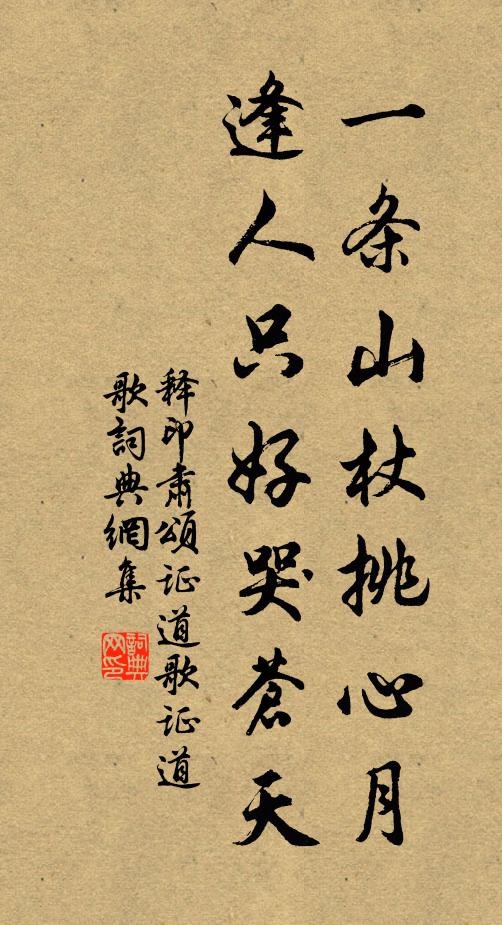 一条山杖挑心月
逢人只好哭苍天
释印肃颂证道歌证道
歌詞典網集
詞典网印